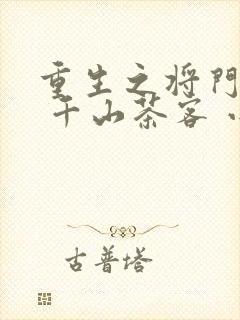 重生之将門
千山茶客
古普塔